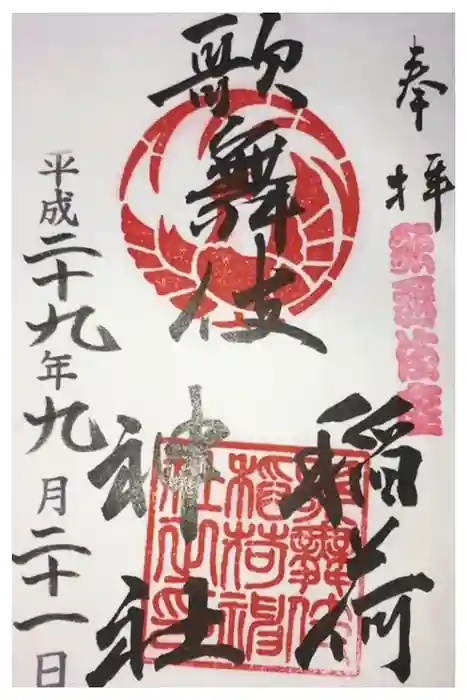 奉拝
歌舞伎座
歌舞伎
稲荷
神社
歌舞伎
稲荷神
社之印
平成二十九年九月二十一日